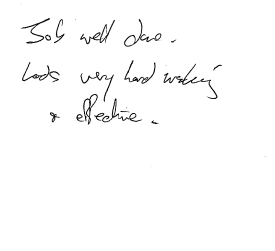 Job well done.
Lads very hard working
& effective.